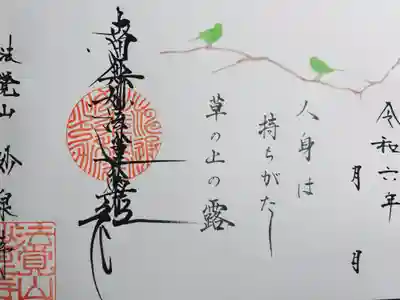 令和六年
月 月
人身は
持ちがたし
草の上の露
南無妙法蓮華経
法覚山 妙泉寺
法覚山